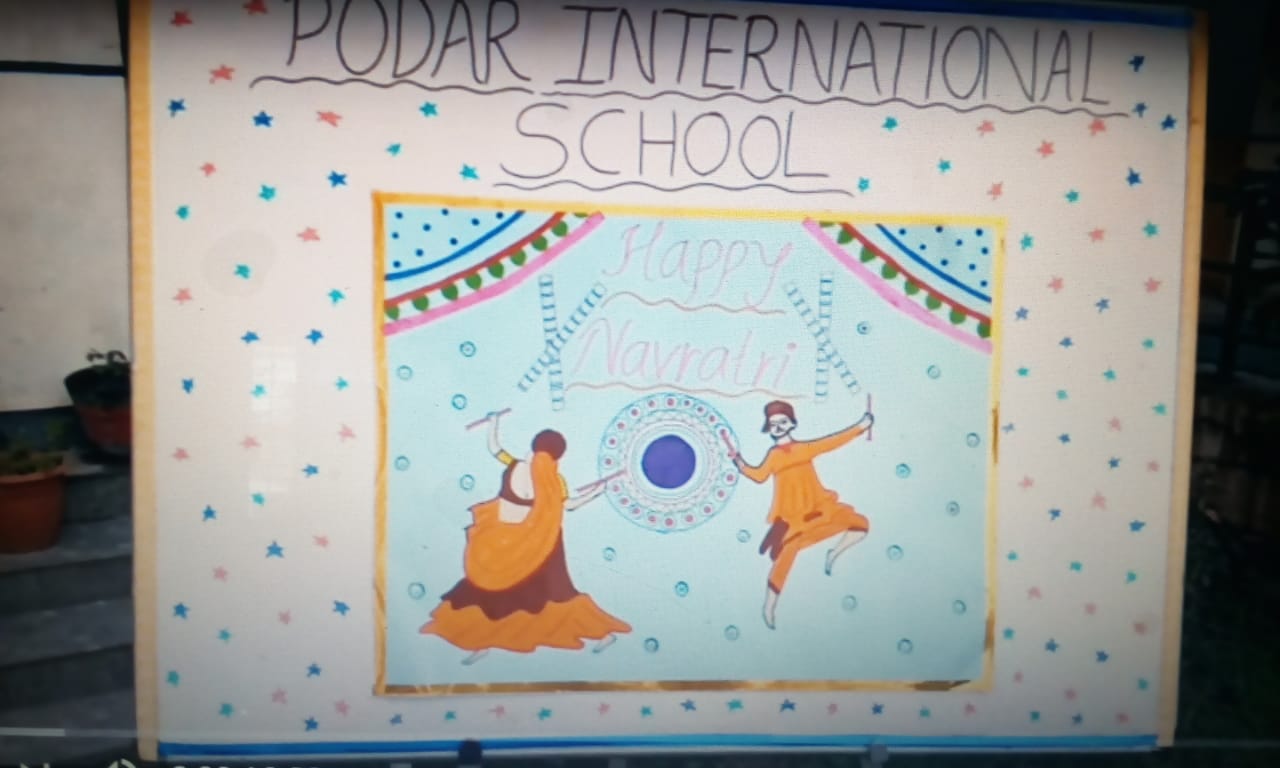 PODAR INTERNATIONAL
SCHOOL
Happy
Navratri